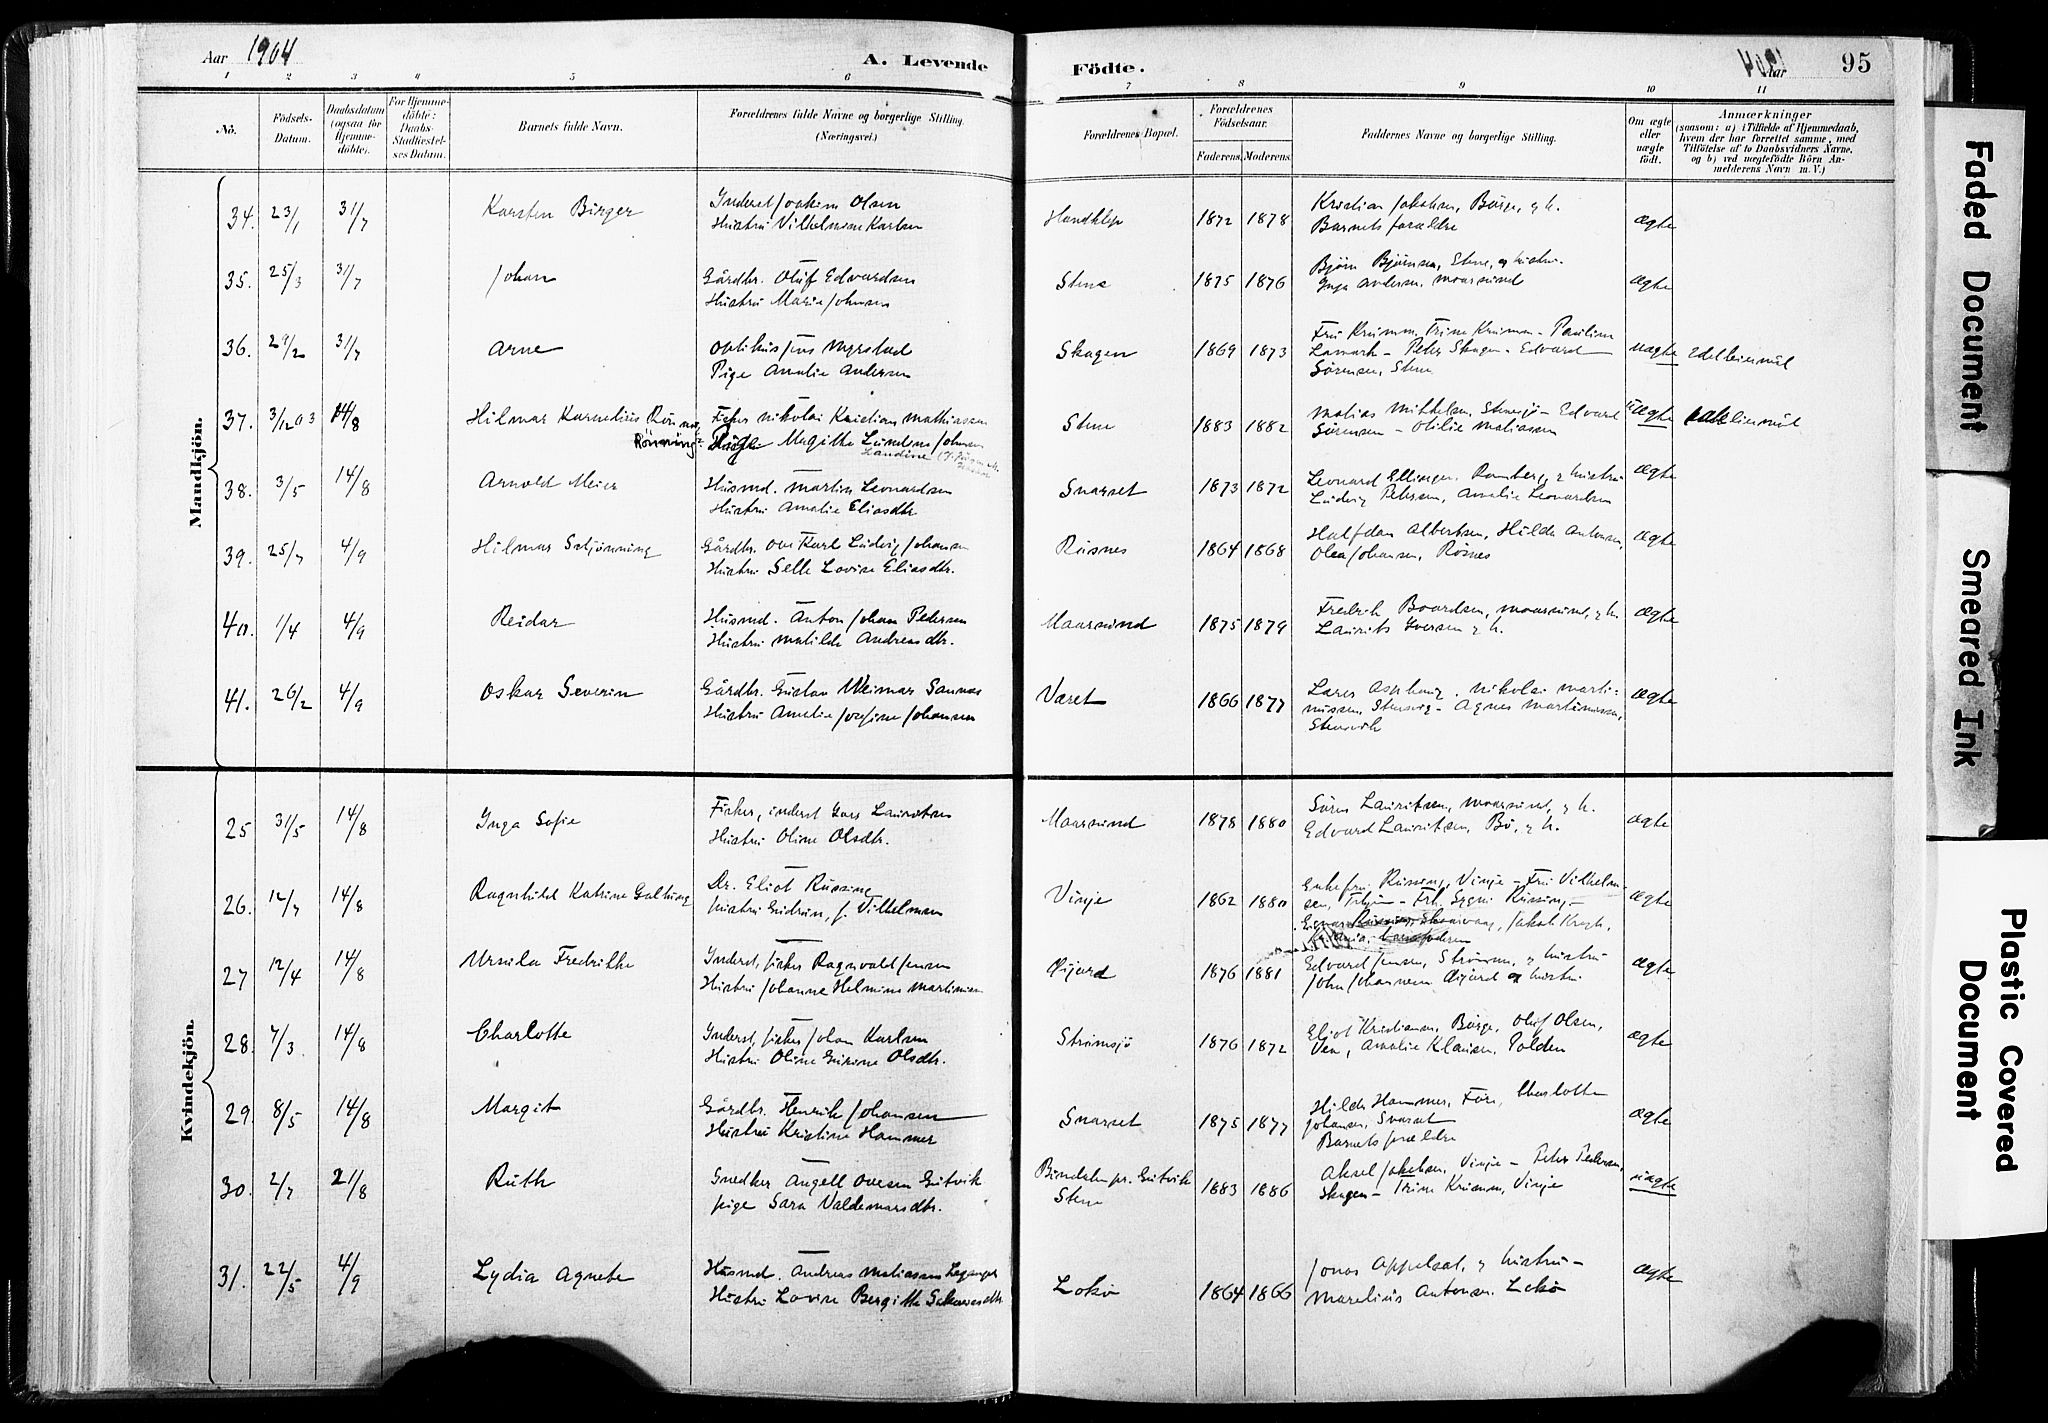 Aar 1904
A. Levende
Födte.
Aar
95
1 2 3 4 5 6 7 8 9 10 11
No.
Födsels-Datum.
Daabsdatum (ogsaa for Hjemme-döbte).
For Hjemme-döbte: Daabs-Stadfæstel-ses Datum.
Barnets fulde Navn.
Forældrenes fulde Navne og borgerlige Stilling. (Næringsvei.)
Forældrenes Bopæl.
Forældrenes Födselsaar.
Faderens. Moderens.
Faddernes Navne og borgerlige Stilling.
Om ægte eller uægte födt.
Anmærkninger
(saasom: a) i Tilfælde af Hjemmedaab,
hvem der har forrettet samme, med
Tilföielse af to Daabsvidners Navne,
og b) ved uægtefödte Börn An-
melderens Navn m. V.)
Mandkjön.
34. 23/1 31/7 Karsten Birger
Inderst Joakim Olsen
Hustru Vilhelmine Karlsen
1872 1878
Kristian Jakobsen, Börge, & h.
Barnets forældre
ægte
35. 25/3 31/7 Johan
Gårdbr. Oluf Edvardsen
Hustru Marie Johnsen
Stene 1875 1876
Björn Björnsen, Stene, og hustru.
Inga Andersen, Maarsund
ægte
36. 29/2 31/7 Arne
Optikus Jens Myrstad
Pige Amalie Andersen
Skagen 1869 1873
Fru Krumm, Trine Krumm - Pauline
Peter Skagen - Edvard
Sörensen, Stene
uægte
37. 3/12 03 14/8 Hilmar Kornelius
Rönning
Fisker Nikolai Kristian Mathiassen
Pige Magitha Johnsen
Landine
Stene 1883 1882
Matias Mikkelsen, - Edvard
Sörensen - Otilie Matiassen
Uægte
38. 3/5 14/8 Arnold Meier
Husmd. Martin Leonardsen
Hustru Amalie Eliasdtr.
Snarset 1873 1872
Leonard Ellingsen, & hustru
Ludvig Petersen, Amalie Leonardsen
ægte
39. 25/7 4/9 Hilmar
Gårdbr. Karl Ludvig Johansen
Hustru Selle Lovise Eliasdtr.
Risnes 1864 1868
Halfdan Albertsen, Hilda Antonsen,
Olea Johansen, Rösnes
ægte
40. 1/4 4/9 Reidar
Husmd. Anton Johan Pedersen
Hustru Matilde Andreasdtr.
Maarsund 1875 1879
Fredrik Baardsen, Maarsund, & h.
Laurits Iversen & h.
ægte
41. 26/2 4/9 Oskar Severin
Gårdbr. Gustav Weimar Sannæs
Hustru Amelie Josefine Johansen
Været 1866 1877
Lares Nikolai Marti-
nussen, Stensvig - Agnes Martinussen,
Stensvik
ægte
Kvindekjön.
25 31/5 14/8 Inga Sofie
Fisker, inderst Lauritsen
Hustru Oline Olsdtr.
Maarsund 1878 1880
Sören Lauritsen, Maarsund, & h.
Edvard Lauritsen, Bö, & h.
ægte
26. 12/7 14/8 Ragnhild Katrine Galtung
Dr. Eliot Rüssing
hustru Gudrun, f. Vilhelmsen
Vinje 1862 1880
Enkefru Rüssing, Vinje - Fru Vilhelm-
sen, - Frk. Sygni Rüssing -
Jakob Krogh,
ægte
27 12/4 14/8 Ursula Fredrikke
Inderst, fisker Ragnvald Jensen
Hustru Johanne Helmine Martinsen
Öijord 1876 1881
Edvard Jensen, Strömmen, & hustru
John Johannesen Öijord og hustru.
ægte
28. 7/3 14/8 Charlotte
Inderst, fisker Johan Karlsen
Hustru Oline Olsdtr.
Strömsjö 1876 1872
Eliot Kristiansen, Börge, Oluf Olsen,
Vea, Amalie Klausen, Polden
ægte
29. 8/5 14/8 Margit
Gårdbr. Henrik Johansen
Hustru Kristine Hammer
Snarset 1875 1877
Hilda Hammer, Före, Charlotte
Johansen, Snarset
Barnets forældre
ægte
30. 2/7 21/8 Ruth
Snedker Angell Ovesen Gutvik
pige Sara Valdemarsdtr.
Bindalen pr. Gutvik
Stene
1883 1886
Aksel Jakobsen, Vinje - Peter Pedersen,
Skagen - Trine Krumm, Vinje
uægte
31. 22/5 4/9 Lydia Agnete
Husmd. Andreas Matiassen
Hustru Lovise Bergitte
1864 1866
Jonas Appelsat, & hustru -
Marelius Antonsen
ægte
Faded Document
Smeared Ink
Plastic Covered Document